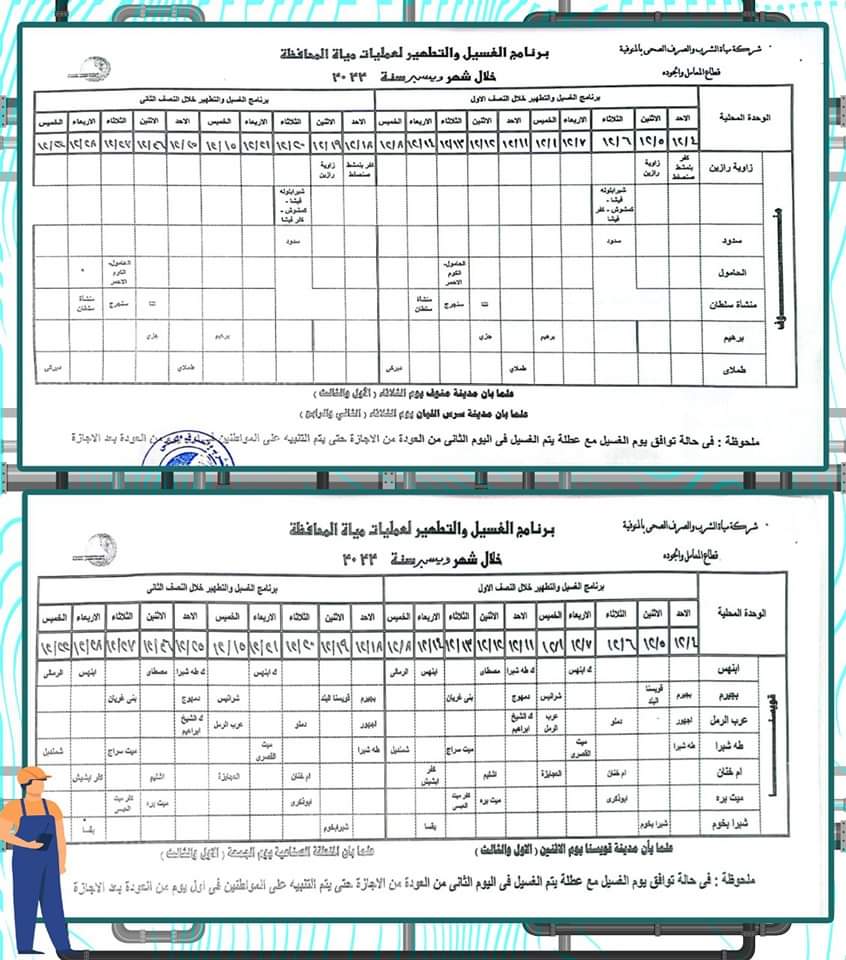 شركة مياة الشرب والصرف الصحى بالمنوفية
قطاع المعامل والجوده
برنامج الغسيل والتطهير لعمليات مياة المحافظة
خلال شهر ديسمبر سنة ٢٠٢٢
الوحدة المحلية
برنامج الغسيل والتطهير خلال النصف الاول
برنامج الغسيل والتطهير خلال النصف الثانى
الاحد الاثنين الثلاثاء الاربعاء الخميس الاحد الاثنين الثلاثاء الاربعاء الخميس الاحد الاثنين الثلاثاء الاربعاء الخميس الاحد الاثنين الثلاثاء الاربعاء الخميس
١٢/٤ ١٢/٥ ١٢/٦ ١٢/٧ ١٢/١ ١٢/١١ ١٢/١٢ ١٢/١٣ ١٢/١٤ ١٢/٨ ١٢/١٨ ١٢/١٩ ١٢/٢٠ ١٢/٢١ ١٢/١٥ ١٢/٢٥ ١٢/٢٦ ١٢/٢٧ ١٢/٢٨ ١٢/٢٢
منوف
زاوية رازين كفر بلمشط صنصفط زاوية رازين كفر بلمشط صنصفط زاوية رازين
شبرابلوله فيشا - كمشوش - كفر فيشا شبرابلوله فيشا - كمشوش - كفر فيشا
سدود سدود سدود
الحامول الحامول- الكوم الاحمر الحامول- الكوم الاحمر
منشأة سلطان تتا سنجرج منشأة سلطان تتا سنجرج منشأة سلطان
برهيم برهيم جزى برهيم جزى
طملاى طملاى ديركى طملاى ديركى
علما بان مدينة منوف يوم الثلاثاء ( الأول والثالث )
علما بان مدينة سرس الليان يوم الثلاثاء ( الثاني والرابع )
ملحوظة : فى حالة توافق يوم الغسيل مع عطلة يتم الغسيل فى اليوم الثانى من العودة من الاجازة حتى يتم التنبيه على المواطنين فى اول يوم من العودة بعد الاجازة
شركة مياة الشرب والصرف الصحى بالمنوفية
قطاع المعامل والجوده
برنامج الغسيل والتطهير لعمليات مياة المحافظة
خلال شهر ديسمبر سنة ٢٠٢٢
الوحدة المحلية
برنامج الغسيل والتطهير خلال النصف الاول
برنامج الغسيل والتطهير خلال النصف الثانى
الاحد الاثنين الثلاثاء الاربعاء الخميس الاحد الاثنين الثلاثاء الاربعاء الخميس الاحد الاثنين الثلاثاء الاربعاء الخميس الاحد الاثنين الثلاثاء الاربعاء الخميس
١٢/٤ ١٢/٥ ١٢/٦ ١٢/٧ ١٢/١ ١٢/١١ ١٢/١٢ ١٢/١٣ ١٢/١٤ ١٢/٨ ١٢/١٨ ١٢/١٩ ١٢/٢٠ ١٢/٢١ ١٢/١٥ ١٢/٢٥ ١٢/٢٦ ١٢/٢٧ ١٢/٢٨ ١٢/٢٢
قويسنا
ابنهس ك ابنهس ك طه شبرا مصطاى ابنهس الرمالى ك ابنهس ك طه شبرا مصطاى ابنهس الرمالى
بجيرم بجيرم قويسنا البلد شرانيس دمهوج بنى غريان بجيرم قويسنا البلد شرانيس دمهوج بنى غريان
عرب الرمل اجهور دملو عرب الرمل ك الشيخ ابراهيم اجهور دملو عرب الرمل ك الشيخ ابراهيم
طه شبرا طه شبرا ميت القصرى ميت سراج شمنديل طه شبرا ميت القصرى ميت سراج شمنديل
ام خنان ام خنان العجايزة اشليم كفر ابشيش ام خنان العجايزة اشليم كفر ابشيش
ميت بره ابوذكرى ميت بره كفر ميت العبسى ابوذكرى ميت بره كفر ميت العبسى
شبرا بخوم شبرا بخوم بقسا شبرابخوم بقسا
علما بأن مدينة قويسنا يوم الاثنين ( الاول والثالث )
علما بان المنطقة الصناعية يوم الجمعة ( الاول والثالث )
ملحوظة : فى حالة توافق يوم الغسيل مع عطلة يتم الغسيل فى اليوم الثانى من العودة من الاجازة حتى يتم التنبيه على المواطنين فى اول يوم من العودة بعد الاجازة